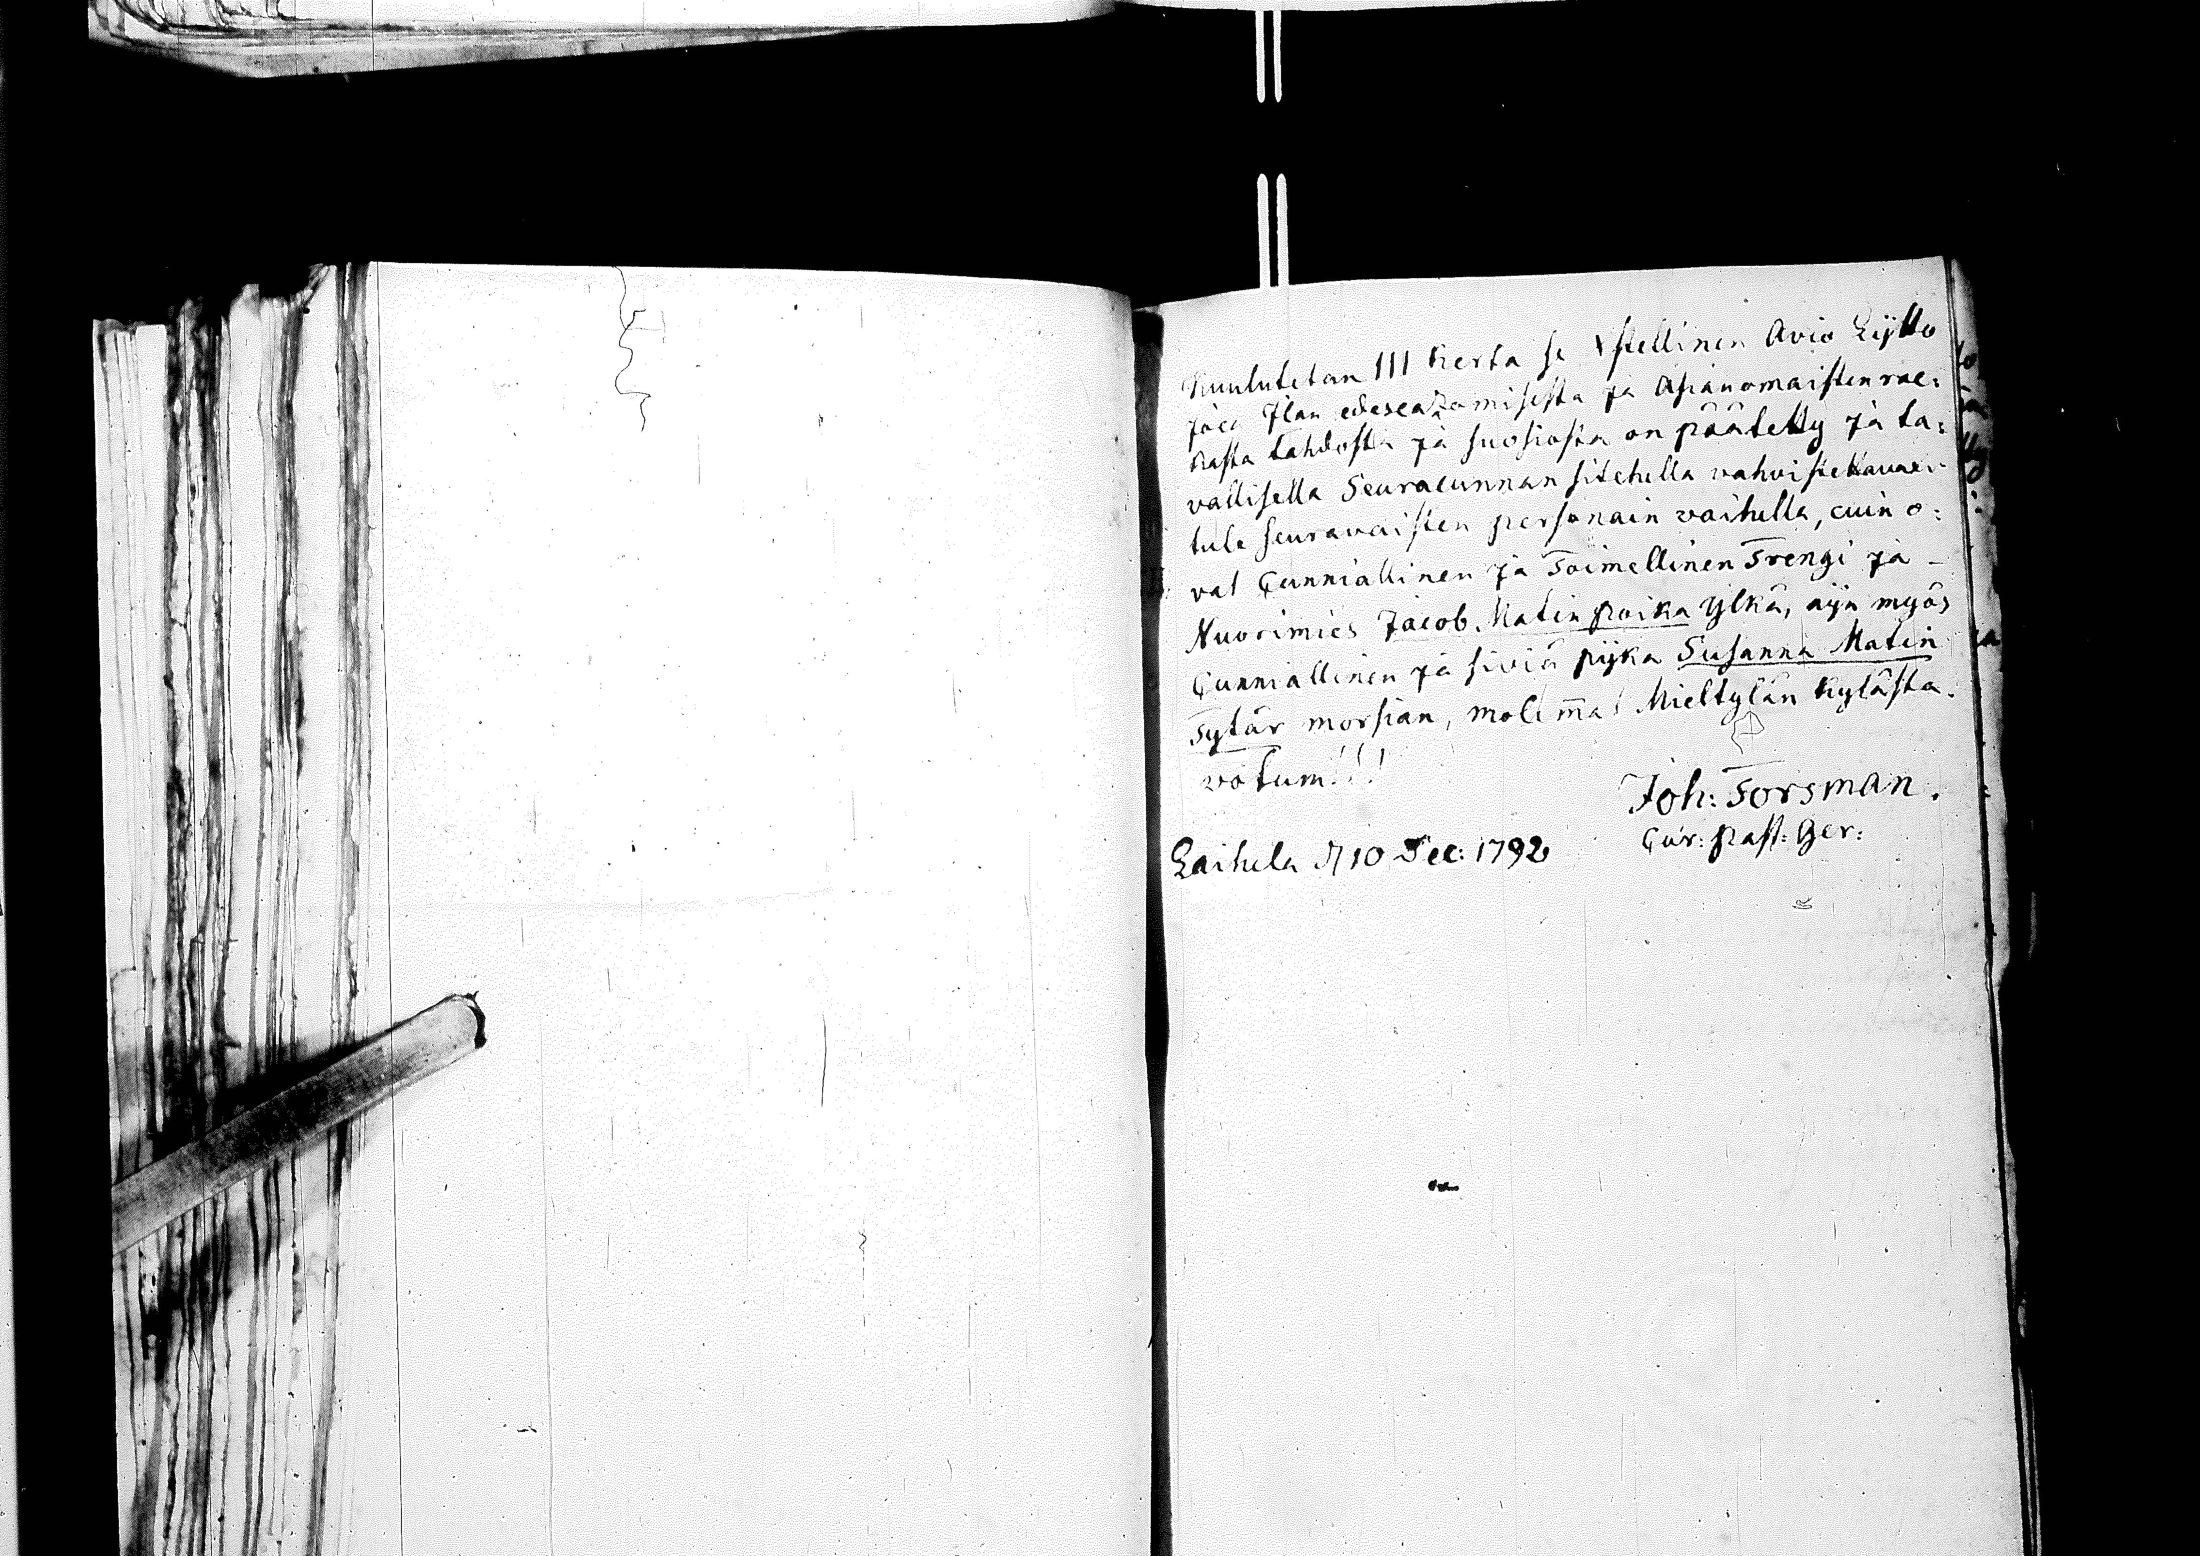 Kuulutetan III Kerta se Xstellinen Avio Lijtto
joca Jlan edescazomisesta ja Asianomaisten rac:
kasta tahdosta ja suosiosta on päätetty ja ta:
vallisella Seuracunnan sitehella vahvistettava
tule seuravaisten personain vaihella, cuin o:
vat Cunniallinen ja Toimellinen Trengi ja -
Nuorimies Jacob Matin poika Ylkä, nijn myös
Cunniallinen ja siviä pijka Susanna Matin
Tytär morsian, molem̄at Mieltylän Kylästä.
votum!!!
Joh: Forsman.
Cur: Past: Ger:
Laihela d 10 Dec: 1792